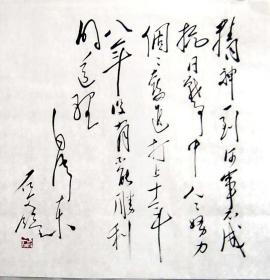 精神一到何事不成
抗日戰争中人人努力
個個奮進打上十年
八年没有不能勝利
的道理
毛澤東